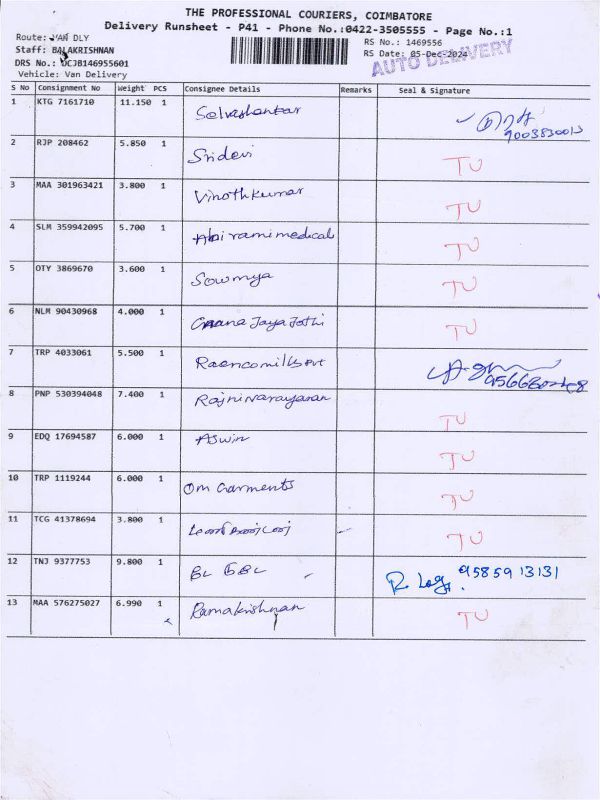 THE PROFESSIONAL COURIERS, COIMBATORE
Delivery Runsheet - P41 - Phone No.:0422-3505555 - Page No.:1
Route: VAN DLY
RS No.: 1469556
Staff: BALAKRISHNAN
RS Date: 05-Dec-2024
AUTO DELIVERY
DRS No.: UCJB146955601
Vehicle: Van Delivery
S No Consignment No Weight PCS Consignee Details Remarks Seal & Signature
1 KTG 7161710 11.150 1 Selvashankar
2 RJP 208462 5.850 1 Sridevi TU
3 MAA 301963421 3.800 1 Vinothkumar TU
4 SLM 359942095 5.700 1 Abirami medical TU
5 OTY 3869670 3.600 1 Sowmya TU
6 NLM 90430968 4.000 1 Gnana Jaya Jothi TU
7 TRP 4033061 5.500 1
8 PNP 530394048 7.400 1 Rajni Narayanan TU
9 EDQ 17694587 6.000 1 Aswin TU
10 TRP 1119244 6.000 1 Om Garments TU
11 TCG 41378694 3.800 1 TU
12 TNJ 9377753 9.800 1 9585913131
13 MAA 576275027 6.990 1 Ramakrishnan TU